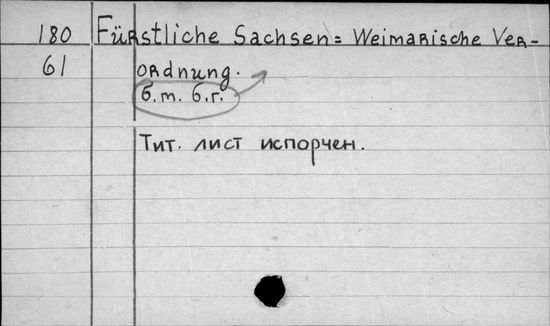 180 Fürstliche Sachsen= Weimarische Ver-
61 ordnung.
б.m. б.г.
Тит. лист испорчен.